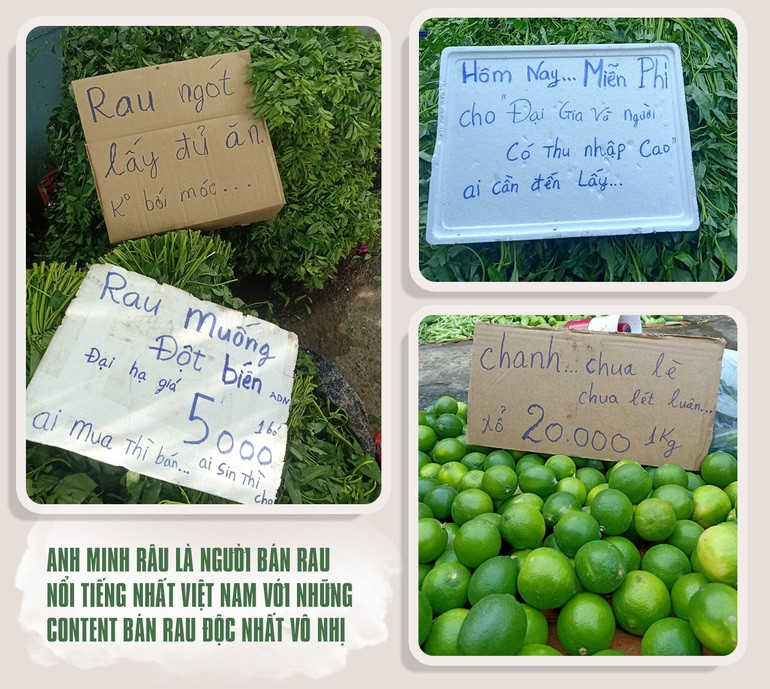 Rau ngót
lấy đủ ăn.
K° bới móc...
Rau muống
Đột biến ADN
Đại hạ giá
5000 1 bó
ai mua thì bán... ai sin thì
cho
Hôm Nay... Miễn Phí
cho "Đại Gia Và người
Có Thu nhập Cao"
ai cần đến Lấy...
chanh... chua lè
chua lét luôn...
xổ 20.000 1Kg
ANH MINH RÂU LÀ NGƯỜI BÁN RAU
NỔI TIẾNG NHẤT VIỆT NAM VỚI NHỮNG
CONTENT BÁN RAU ĐỘC NHẤT VÔ NHỊ